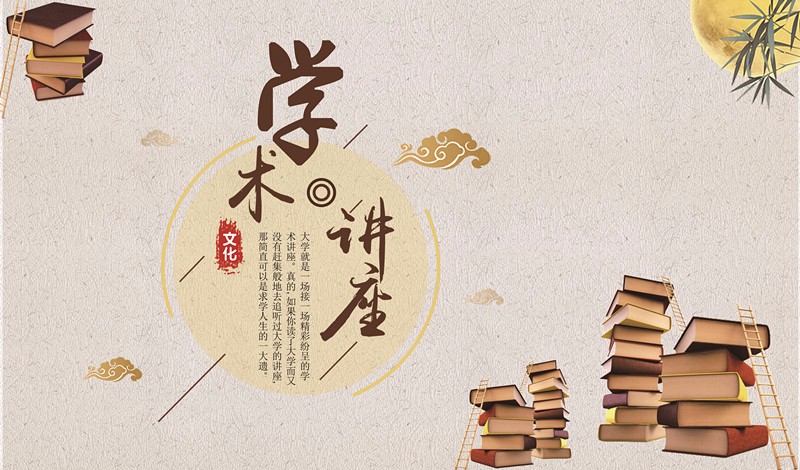 学术讲座
文化
大学就是一场接一场精彩纷呈的学
术讲座。真的,如果你读了大学而又
没有赶集般地去追听过大学的讲座,
那简直可以是求学人生的一大遗。